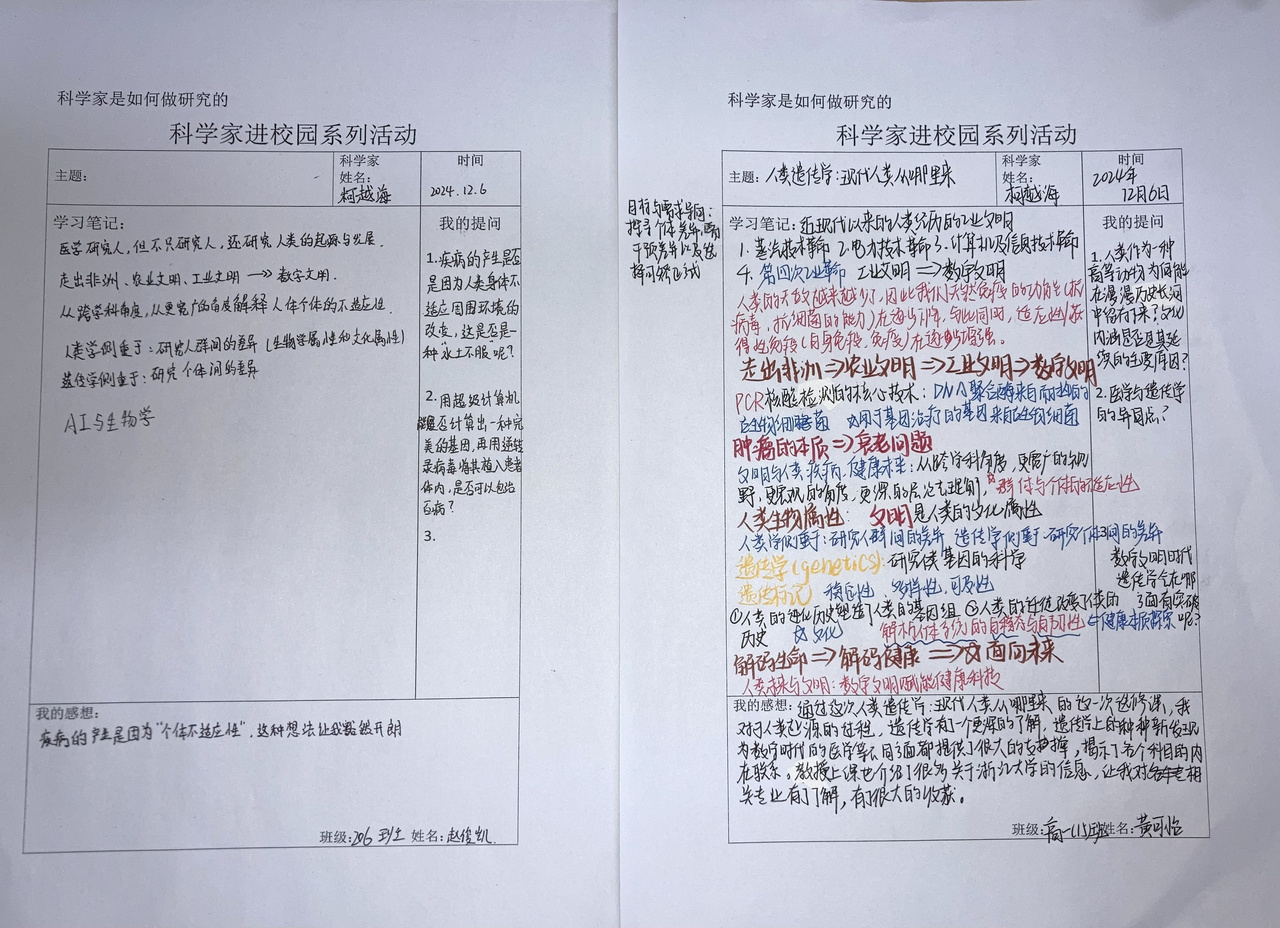 科学家是如何做研究的
科学家进校园系列活动
主题:
科学家
姓名:
柯越海
时间
2024.12.6
学习笔记:
医学研究人,但不只研究人,还研究人类的起源与发展.
走出非洲、农业文明、工业文明 →> 数字文明.
从跨学科角度,从更宽广的角度解释人体个体的不适应性.
人类学侧重于:研究人群间的差异(生物学属性和文化属性)
遗传学侧重于:研究个体间的差异
AI与生物学
我的提问
1.疾病的产生是否
是因为人类身体不
适应周围环境的
改变,这是否是一
种水土不服呢?
2.用超级计算机
能否计算出一种完
美的基因,再用逆转
录病毒将其植入患者
体内,是否可以包治
百病?
3.
我的感想:
疾病的产生是因为“个体不适应性”,这种想法让我豁然开朗
班级:206班 姓名:赵俊凯
科学家是如何做研究的
科学家进校园系列活动
主题:人类遗传学:现代人类从哪里来
科学家
姓名:
柯越海
时间
2024年
12月6日
目标与需求导向:
探寻个体差异,
干预差异以及选
择可
学习笔记:近现代以来的人类经历的工业文明
1.蒸汽技术革命 2.电力技术革命 3.计算机及信息技术革命
4.第四次工业革命 工业文明⇒数字文明
人类的天敌越来越少了,因此我们天然免疫的功能(抗
病毒,抗细菌的能力)在逐步下降,与此同时,适应性/获
得性免疫(自身免疫、免疫)在逐步增强。
走出非洲⇒农业文明⇒工业文明⇒数字文明
PCR核酸检测的核心技术:DNA聚合酶来自耐热的
古生物细菌 用于基因治疗的基因来自生物细菌
肿瘤的本质⇒衰老问题
文明与人类疾病,健康未来:从跨学科角度,更宽广的视
野,更宏观的角度,更深的层次去理解,群体与个体的不适应性
人类生物属性: 文明是人类的文化属性
人类学侧重于:研究人群间的差异 遗传学侧重于:研究个体间的差异
遗传学(genetics):研究关基因的科学
遗传标记 稳定性、多样性、可及性
①人类的进化历史塑造了人类的基因组 ②人类的迁徙改变了人类的
历史 文化 解析人体系统的自稳态与自韧性⇐健康本质探索
解码生命⇒解码健康⇒面向未来
人类未来与文明:数字文明赋能健康科技
我的提问
1.人类作为一种
高等动物为何能
在漫漫历史长河
中留存下来?文化
内涵是否是其延
续的主要原因?
2.医学与遗传学
的异同点?
3
数字文明时代
遗传学会在哪
方面有突破
呢?
我的感想:通过这次人类遗传学:现代人类从哪里来的这一次选修课,我
对于人类起源的过程,遗传学有一个更深的了解,遗传学上的种种新发现
为数字时代的医学等不同方面都提供了很大的支撑,揭示了各个科目的内
在联系。教授上课也介绍了很多关于浙江大学的信息,让我对相
关专业有了解,有了很大的收获。
班级:高一(15)班姓名:黄可怡